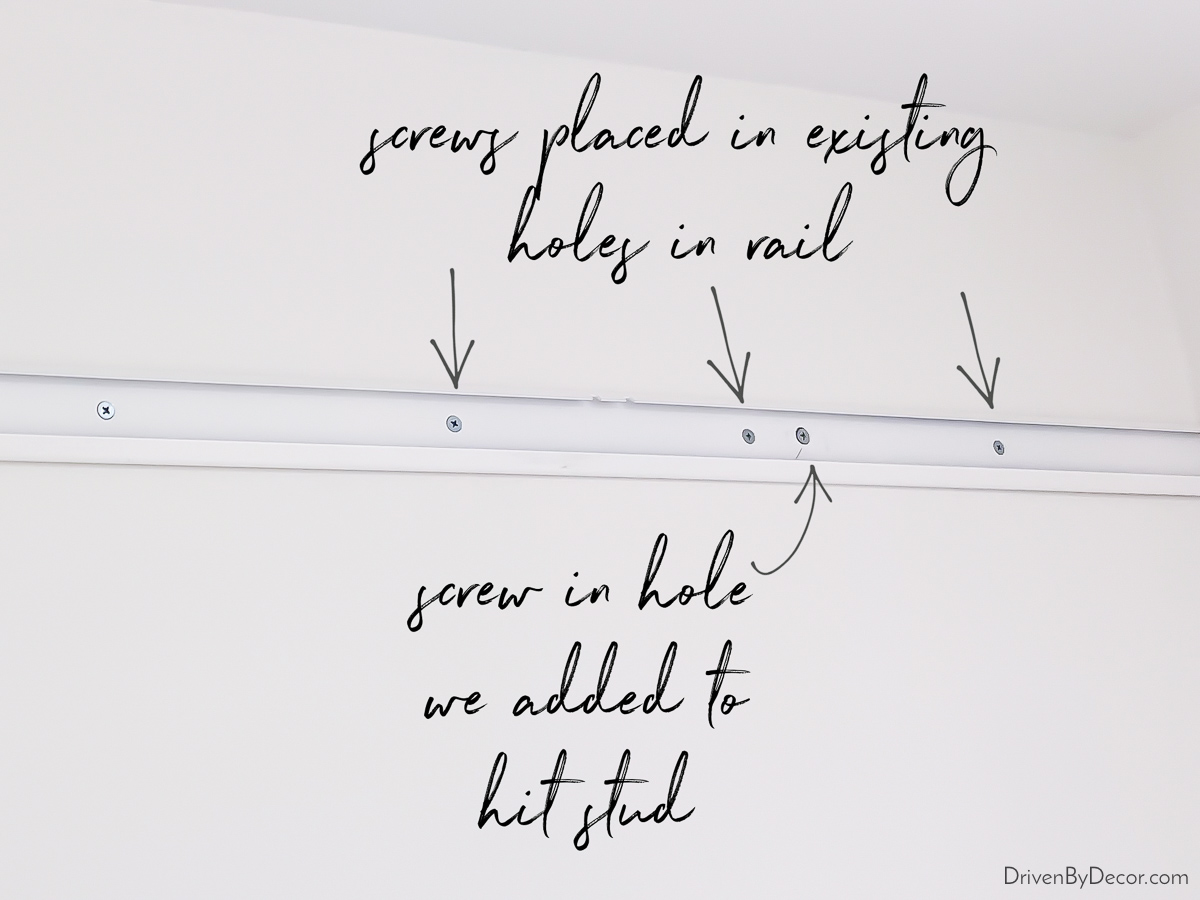 screws placed in existing
holes in rail
screw in hole
we added to
hit stud
DrivenByDecor.com